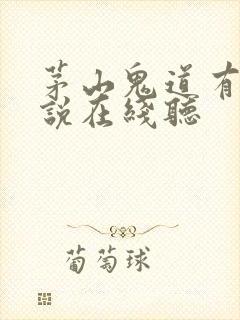 茅山鬼道有
說在綫聽
葡萄球